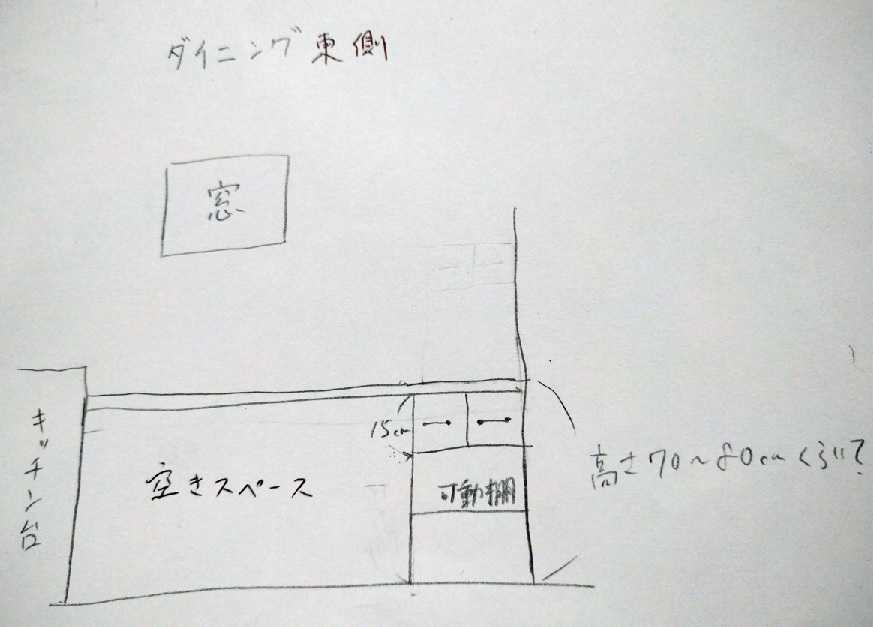 ダイニング東側
窓
キッチン台
15cm
空きスペース
可動棚
高さ70～80cmくらい?